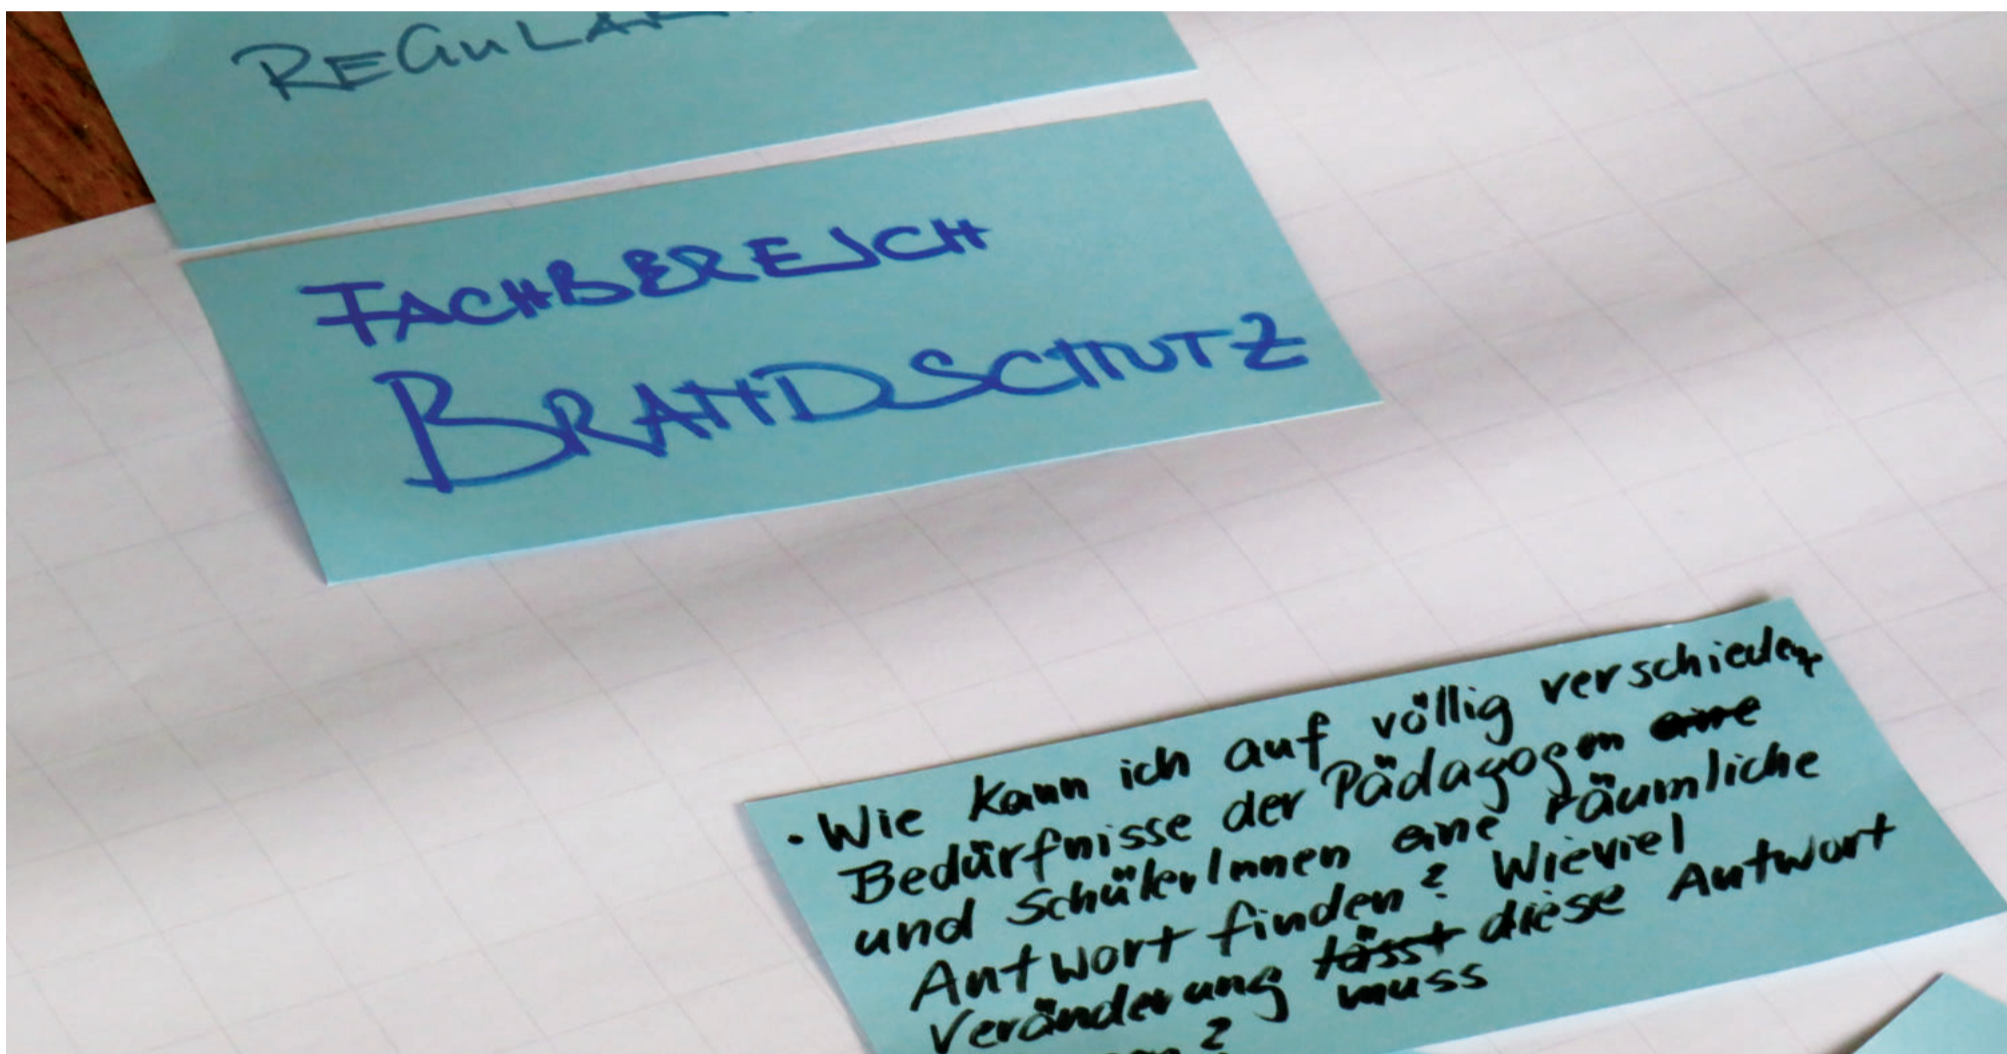 FACHBEREICH
BRANDSCHUTZ
· Wie kann ich auf völlig verschiedene
Bedürfnisse der Pädagogen eine
und SchülerInnen eine räumliche
Antwort finden? Wieviel
Veränderung lässt diese Antwort
muss